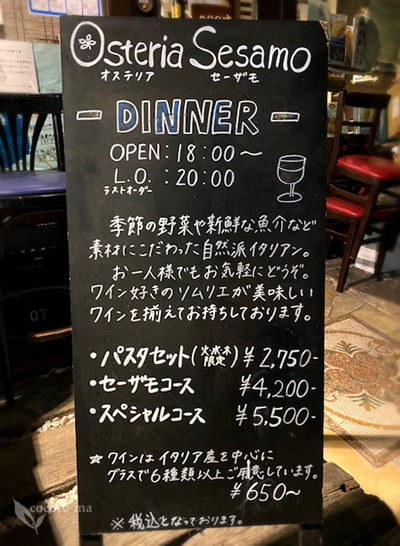 Osteria Sesamo
オステリア セーザモ
- DINNER -
OPEN:18:00〜
L.O.:20:00
ラストオーダー
季節の野菜や新鮮な魚介など
素材にこだわった自然派イタリアン。
お一人様でもお気軽にどうぞ。
ワイン好きのソムリエが美味しい
ワインを揃えてお待ちしております。
・パスタセット(火水木限定) ¥2,750-
・セーザモコース ¥4,200-
・スペシャルコース ¥5,500-
☆ワインはイタリア産を中心に
グラスで6種類以上ご用意しています。
¥650〜
※税込となっております。
07